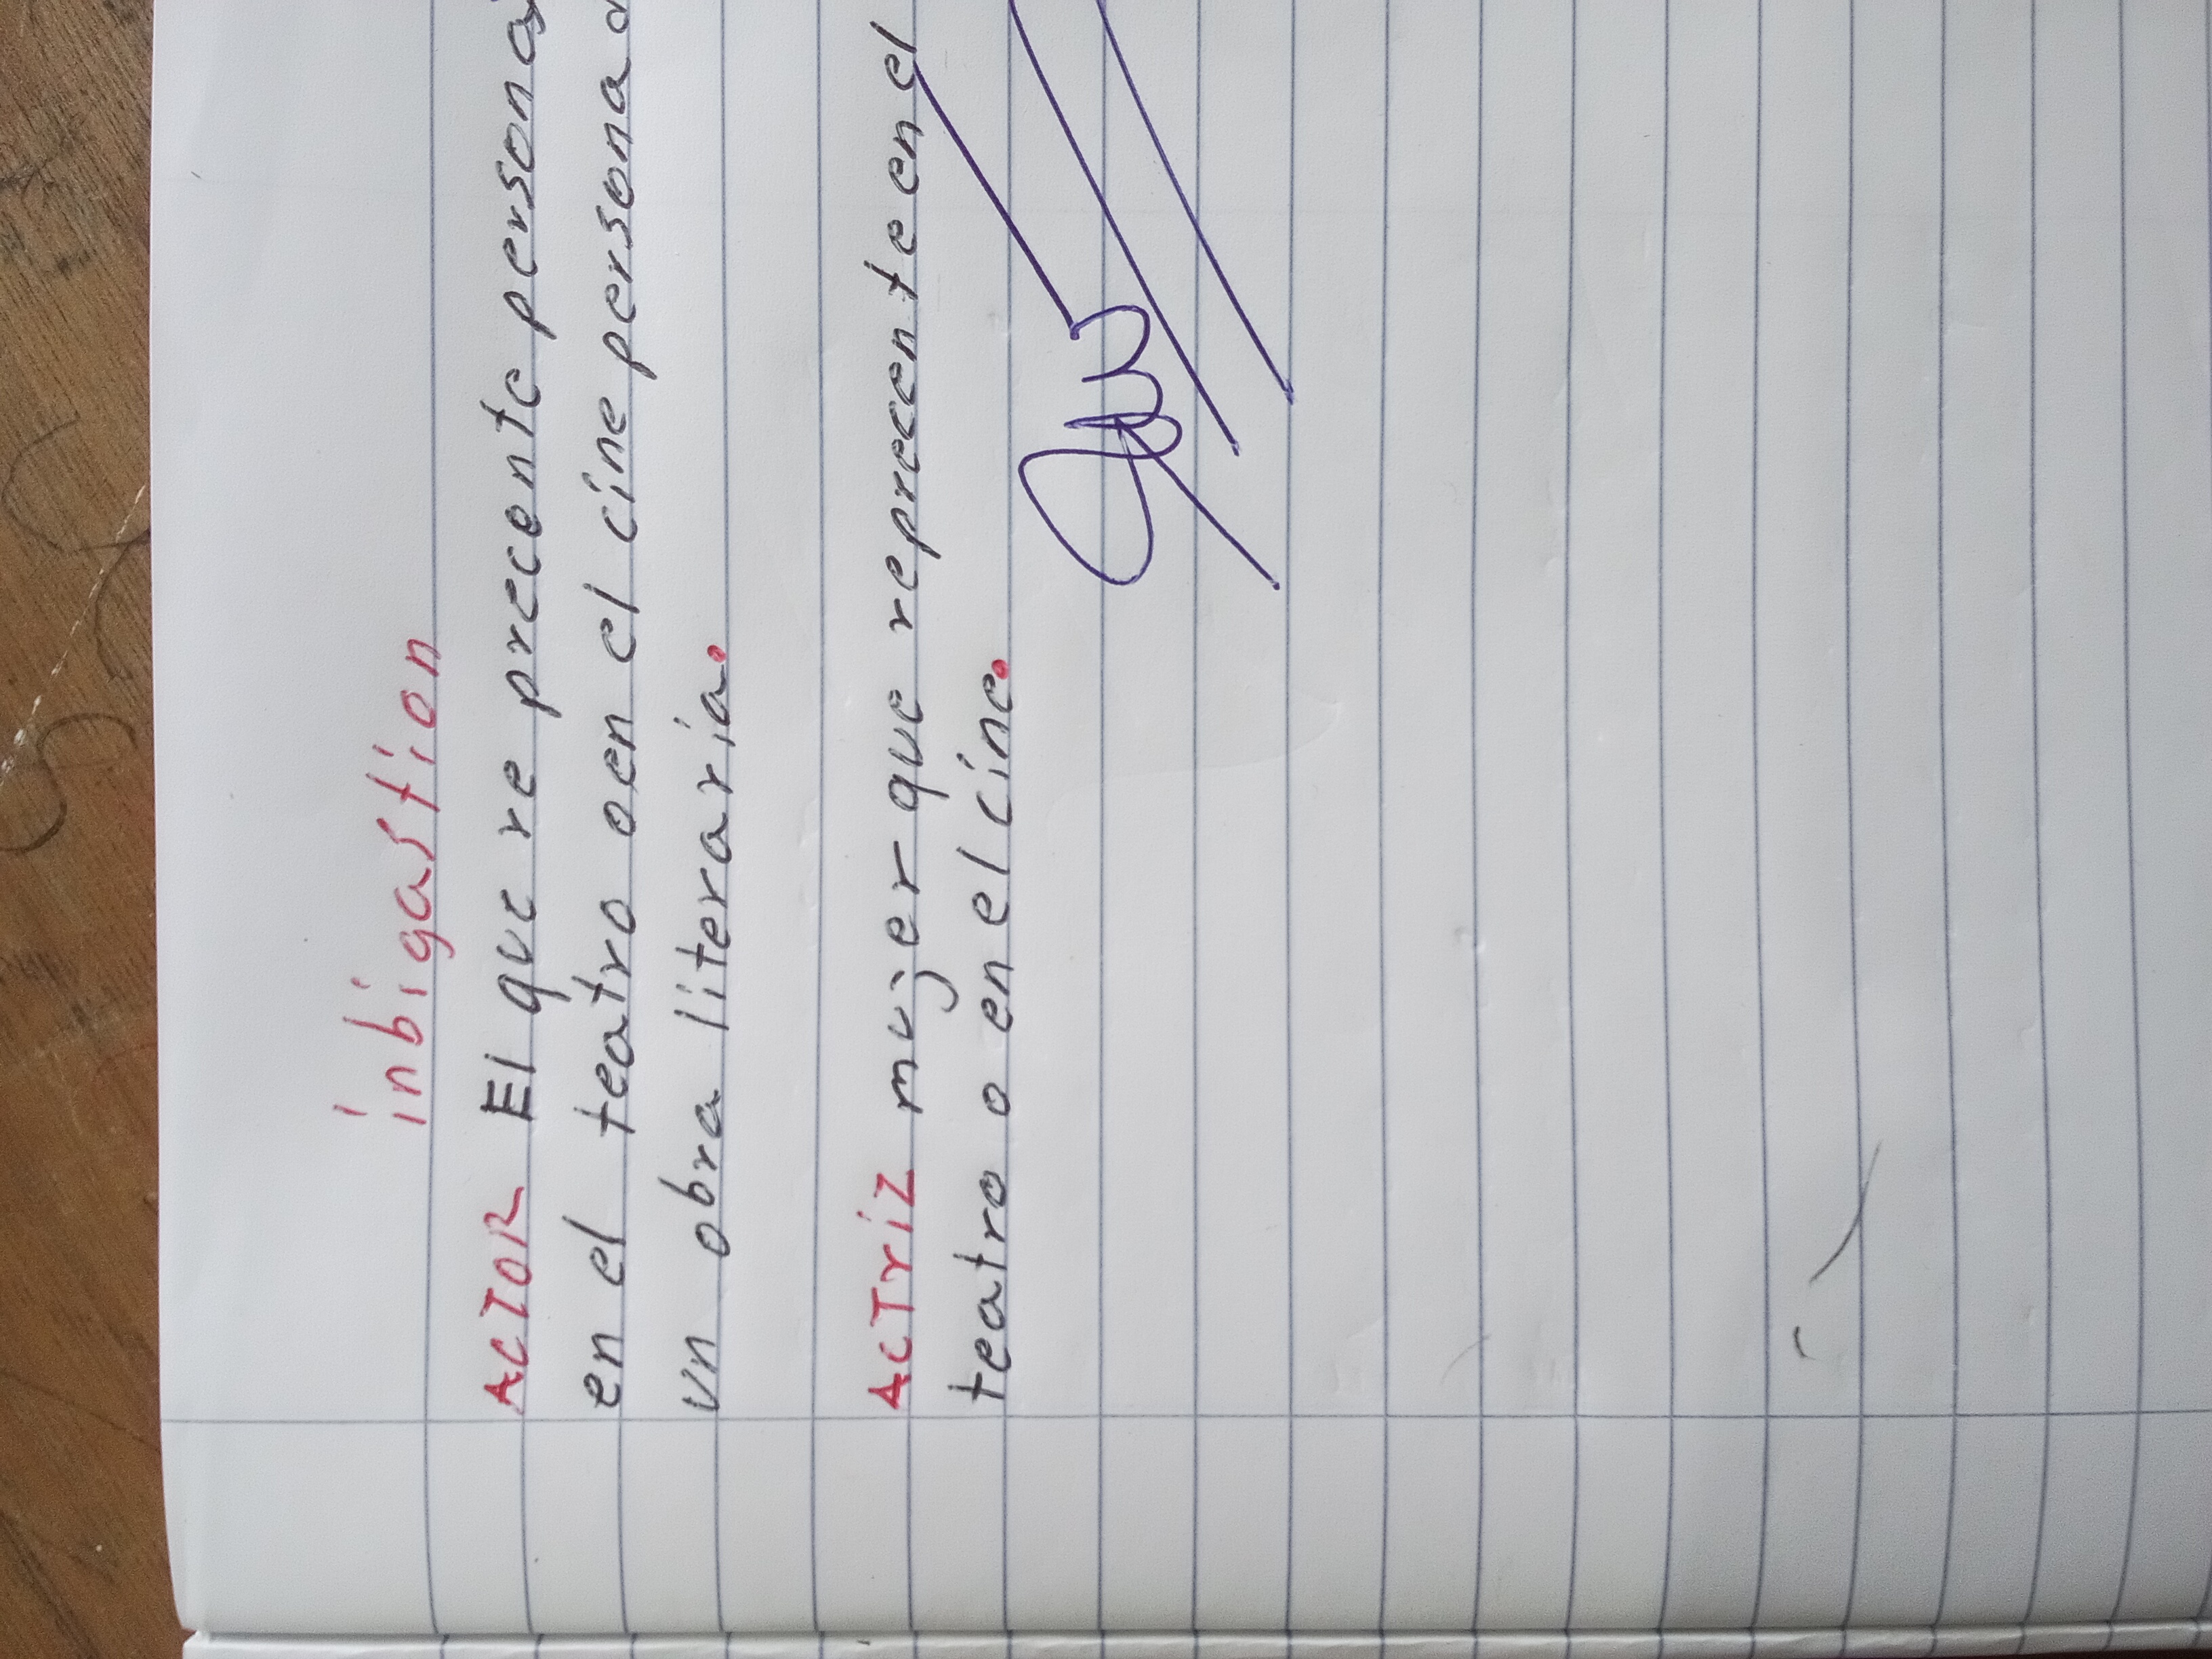 inbigastion
ACTOR El que re precente persona
en el teatro o en el cine persona
un obra literaria.
ACTriz mujer que reprecen te en el
teatro o en el cine.